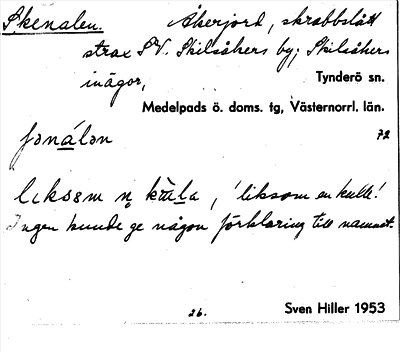 Skenalen. Åkerjord, skrabbslått
strax SV. Skilsåkers by; Skilsåkers
inägor, Tynderö sn.
Medelpads ö. doms. tg, Västernorrl. län.
72
ʃənálən
liksom n̥ kùla, 'liksom en kulle'.
Ingen kunde ge någon förklaring till namnet.
26. Sven Hiller 1953